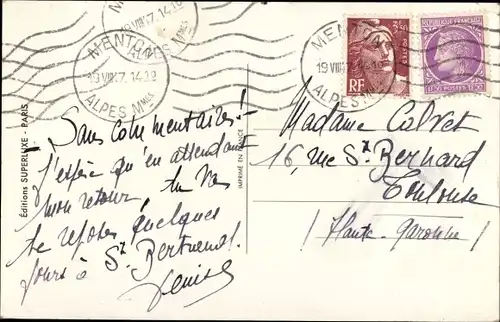 MENTON
19 VIII 47. 14 18
ALPES Mmes
MENTON
19 VIII 47. 1418
ALPES Mmes
MENTON
19 VIII 47. 14 18
ALPES Mmes
3,50
RF
POSTES
REPUBLIQUE FRANÇAISE
POSTES
Éditions SUPERLUXE - PARIS
IMPRIMÉ EN FRANCE
- Sans commentaires!
J'espère qu'en attendant
mon retour, tu vas
te reposer quelques
jours à St. Bertrand.
Denise
Madame Calvet
16, rue St. Bernard
Toulouse
(Haute-Garonne)